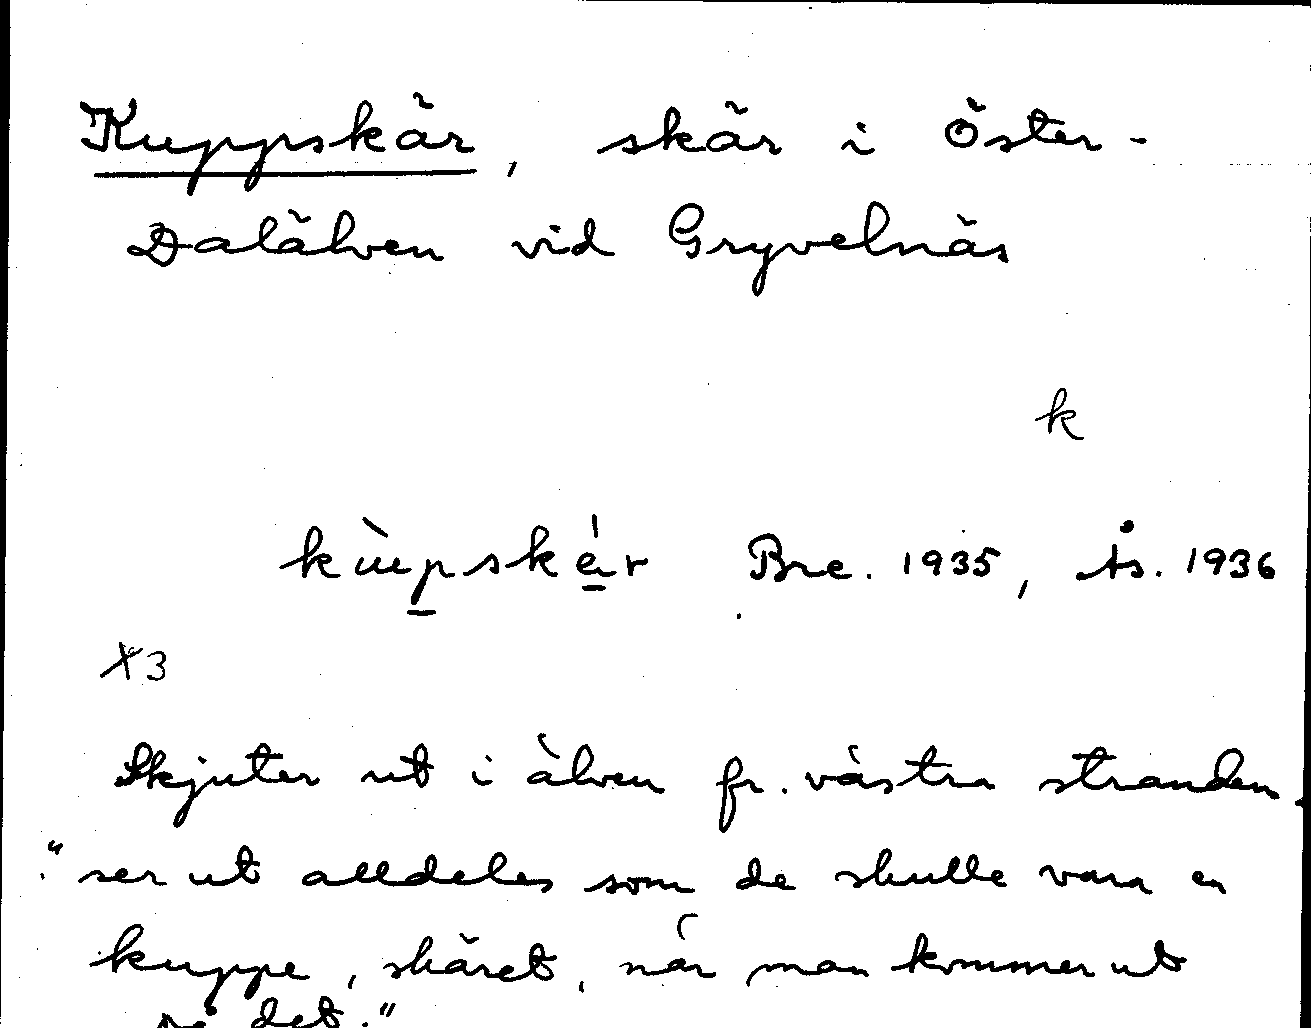 Kuppskär, skär i Öster-
Dalälven vid Gryvelnäs
k
kùpskér Bre. 1935, Ås. 1936
X3
Skjuter ut i älven fr. västra stranden.
"ser ut alldeles som de skulle vara en
kuppe, skäret, när man kommer ut
på det."